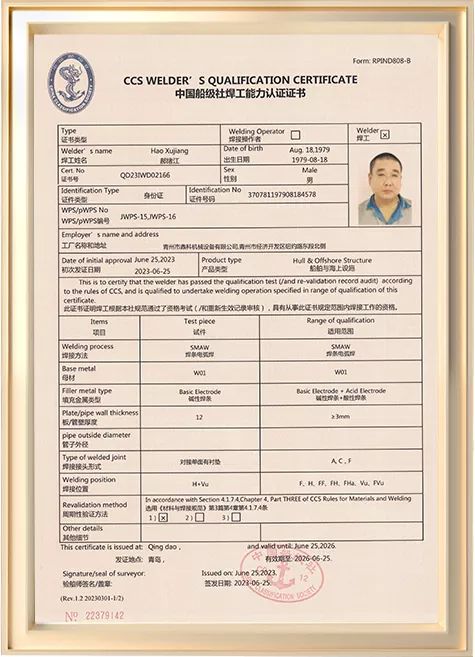 Form: RPIND808-B
CCS WELDER'S QUALIFICATION CERTIFICATE
中国船级社焊工能力认证证书
Type
证书类型
Welding Operator
焊接操作者
Welder
焊工
Welder's name
焊工姓名
Hao Xujiang
郝绪江
Date of birth
出生日期
Aug. 18,1979
1979-08-18
Cert. No
证书号
QD23IWD02166
Sex
性别
Male
男
Identification Type
证件类型
身份证
Identification No
证件号码
370781197908184578
WPS/pWPS No
WPS/pWPS编号
JWPS-15,JWPS-16
Employer's name and address
工厂名称和地址
青州市森科机械设备有限公司,青州市经济开发区纽约路东段北侧
Date of initial approval June 25,2023
初次发证日期 2023-06-25
Product type
产品类型
Hull & Offshore Structure
船舶与海上设施
This is to certify that the welder has passed the qualification test (/and re-validation record audit) according
to the rules of CCS, and is qualified to undertake welding operation specified in range of qualification of this
certificate.
此证书证明焊工根据本社规范通过了资格考试(/和重新生效记录审核),具有从事此证书规定范围内焊接工作的资格。
Items
项目
Test piece
试件
Range of qualification
适用范围
Welding process
焊接方法
SMAW
焊条电弧焊
SMAW
焊条电弧焊
Base metal
母材
W01
W01
Filler metal type
填充金属类型
Basic Electrode
碱性焊条
Basic Electrode + Acid Electrode
碱性焊条+酸性焊条
Plate/pipe wall thickness
板/管壁厚度
12
≥3mm
pipe outside diameter
管子外径
Type of welded joint
焊接接头形式
对接单面有衬垫
A, C , F
Welding position
焊接位置
H+Vu
F, H, FF, FH, FHa, Vu, FVu
Revalidation method
周期性验证方法
In accordance with Section 4.1.7.4,Chapter 4, Part THREE of CCS Rules for Materials and Welding
选用《材料与焊接规范》第3篇第4章第4.1.7.4条
1) 2) 3)
Other details
其他细节
This certificate is issued at: Qing dao , and valid until: June 25,2026.
发证地点: 青岛, 有效期至 2026-06-25.
Signature/seal of surveyor:
验船师签名/盖章:
Issued on: June 25,2023.
签发日期: 2023-06-25.
(Rev.1.2 20230301-1/2)
№ 22379142